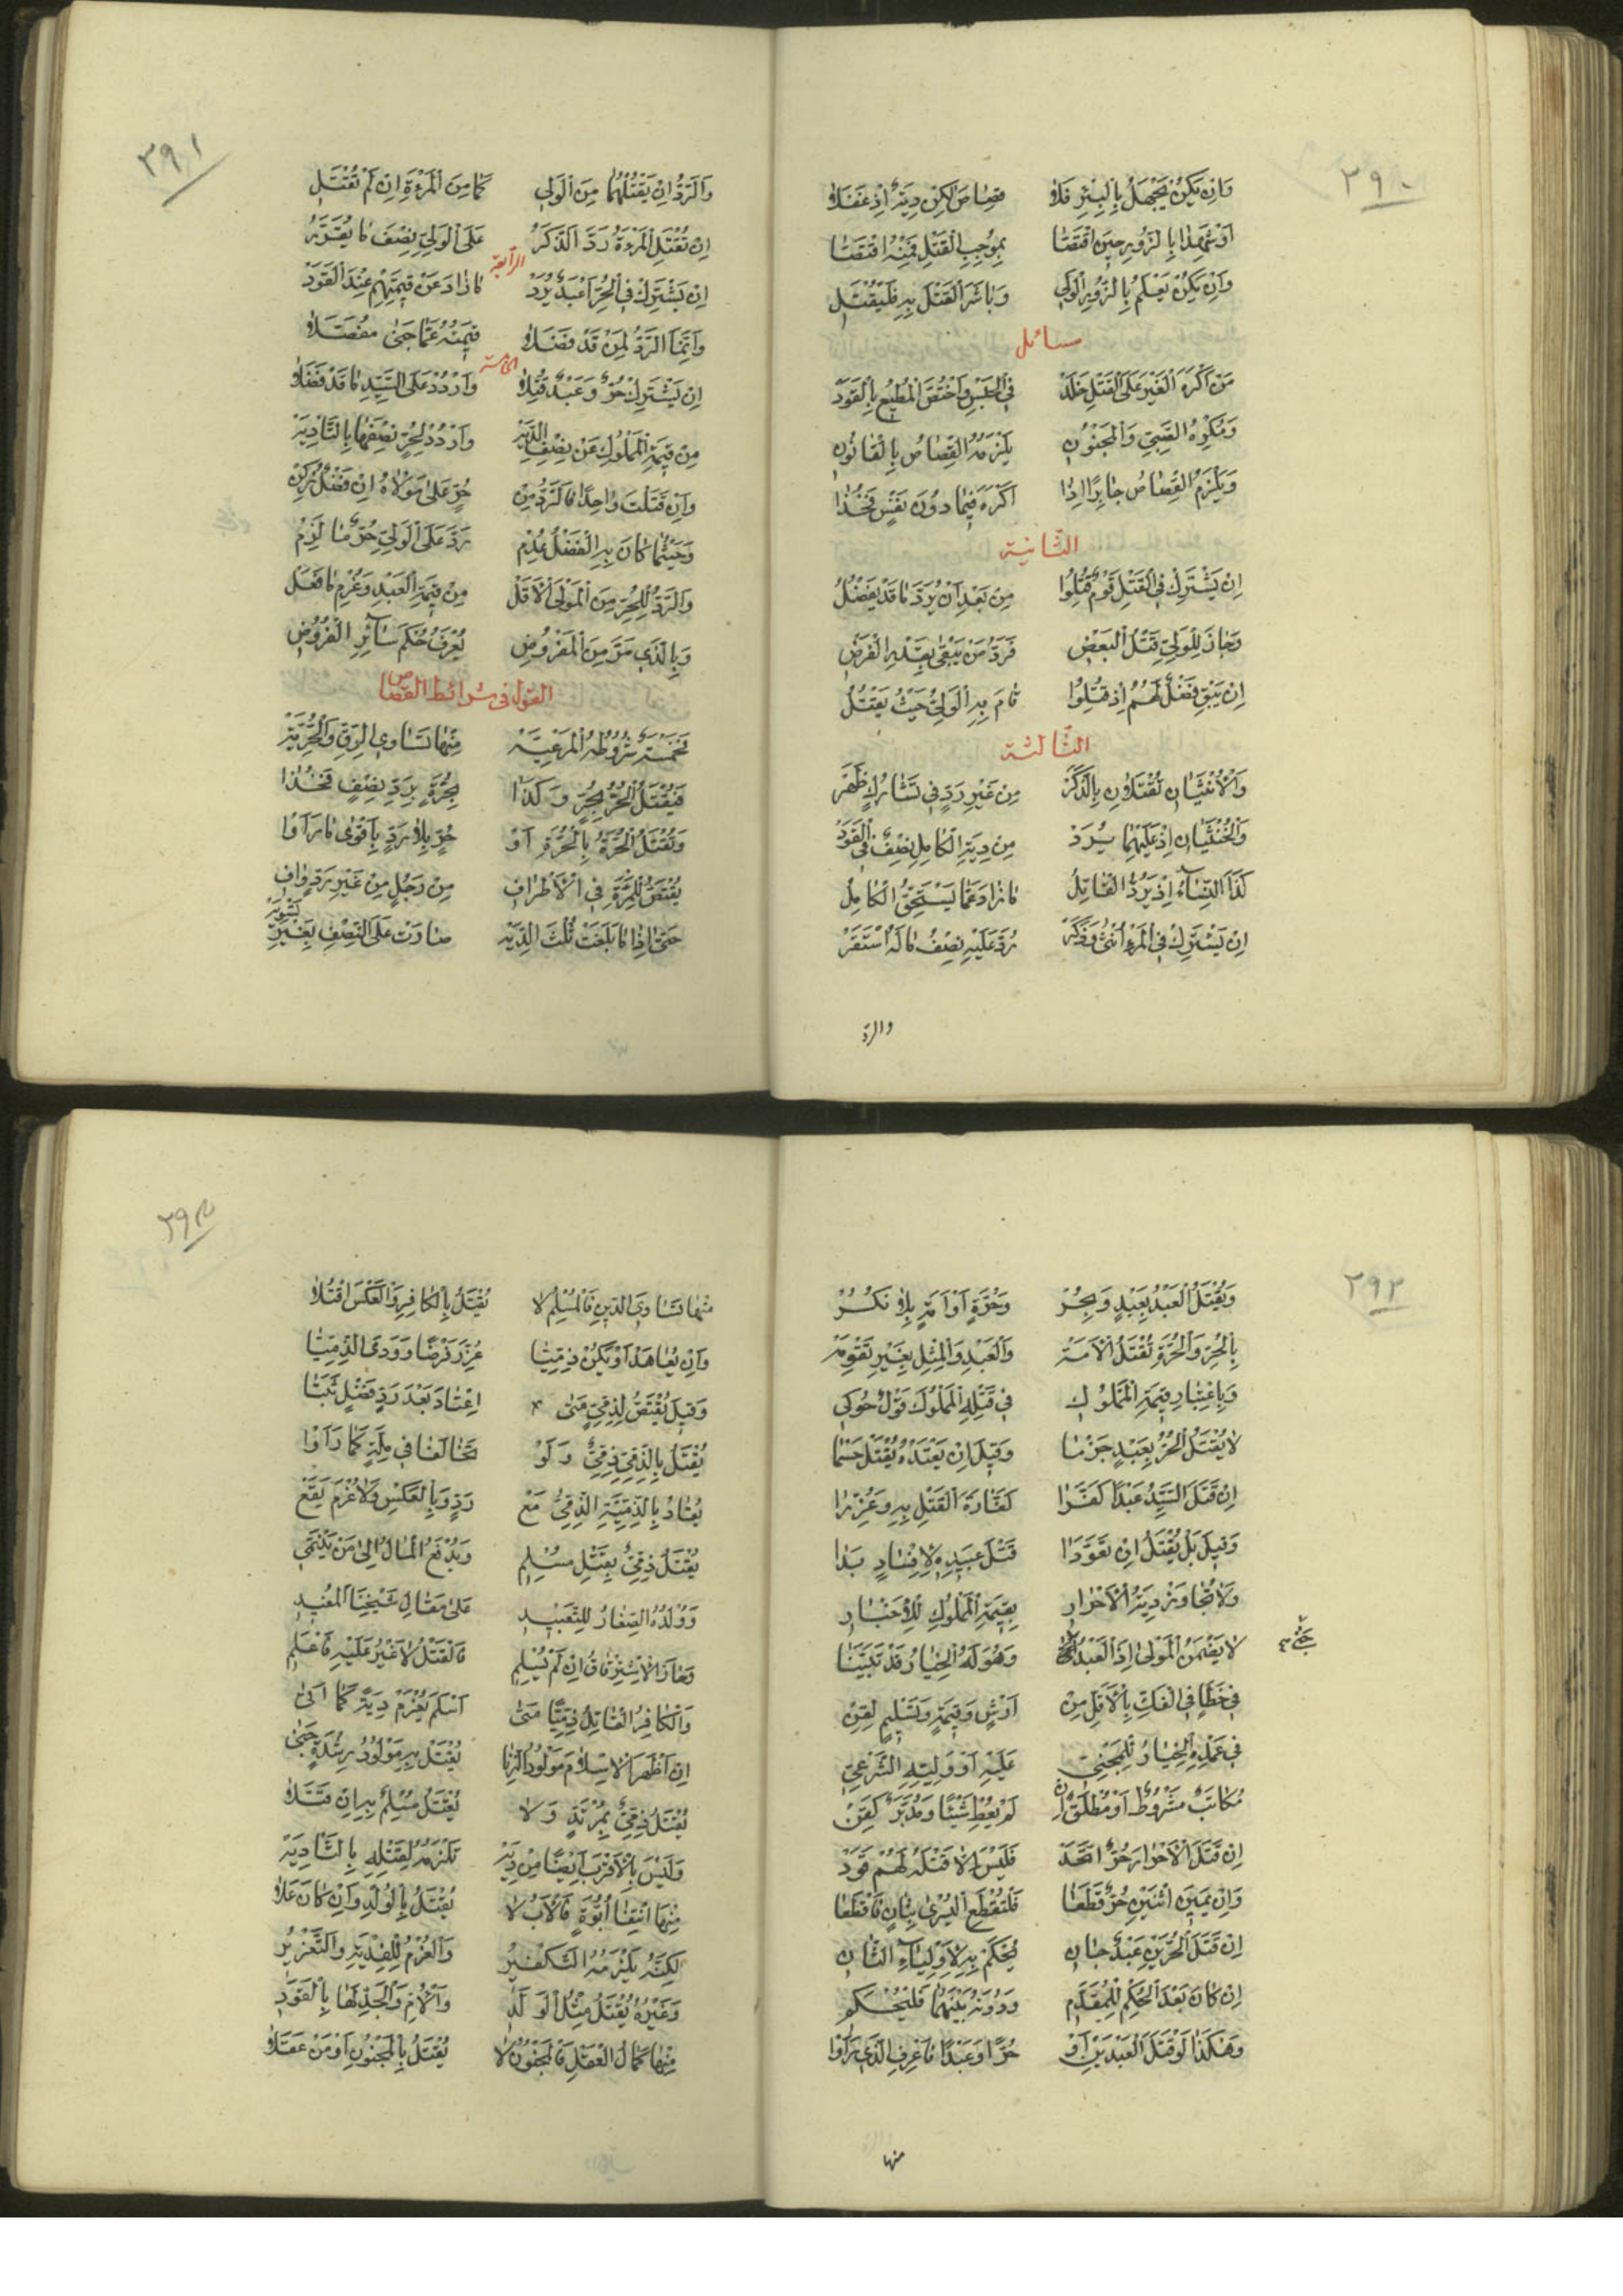 ٣٩٠
وَاِنْ يَكُنْ يَجْهَلُ بِالْبِئْرِ فَلا قِصٰاصَ لٰكِنْ دِيَةٌ اِذْ غَفَلا
اَوْ شَهِدٰا بِالزُّورِ حِينَ اقْتَصّٰا بِمُوجِبِ الْقَتْلِ فَمِنْهُ اقْتَصّٰا
وَاِنْ يَكُنْ يَعْلَمُ بِالزُّورِ الْوَلِي وَبٰاشَرَ الْقَتْلَ بِهِ فَلْيُقْتَلِ
مسائل
مَنْ اَكْرَهَ الْغَيْرَ عَلَى الْقَتْلِ خَلَدْ فِي الْحَبْسِ وَاخْتُصَّ الْمُطِيعُ بِالْقَوَدْ
وَمُكْرِهُ الصَّبِيِّ وَالْمَجْنُونِ يَلْزَمُهُ الْقِصٰاصُ بِالْقٰانُونِ
وَيَلْزَمُ الْقِصٰاصُ جٰابِرًا اِذٰا اَكْرَهَ فِيمٰا دُونَ نَفْسٍ فَخُذٰا
الثانية
اِنْ يَشْتَرِكْ فِي الْقَتْلِ قَوْمٌ قُتِلُوا مِنْ بَعْدِ اَنْ يُرَدَّ مٰا قَدْ يَفْضُلُ
وَجٰازَ لِلْوَلِيِّ قَتْلُ الْبَعْضِ فَرَدُّ مَنْ يَبْقٰى بِعَدْلِهِ الْفَرْضِ
اِنْ يَبْقَ فَضْلٌ لَهُمُ اِذْ قُتِلُوا قٰامَ بِهِ الْوَلِيُّ حَيْثُ يَقْتُلُ
الثالثة
وَالْاُنْثَيٰانِ تُقْتَلاٰنِ بِالذَّكَرْ مِنْ غَيْرِ رَدٍّ فِي تَشٰارُكٍ ظَهَرْ
وَالْخُنْثَيٰانِ اِذْ عَلَيْهِمٰا يُرَدْ مِنْ دِيَةِ الْكٰامِلِ نِصْفٌ فِي الْقَوَدْ
كَذَا النِّسٰاءُ اِذْ يَرُدُّ الْقٰاتِلُ مٰا زٰادَ عَمّٰا يَسْتَحِقُّ الْكٰامِلُ
اِنْ يَشْتَرِكْ فِي الْمَرْءِ اُنْثٰى وَذَكَرْ رُدَّ عَلَيْهِ نِصْفُ مٰا لَهُ اسْتَقَرْ
والرد
٣٩١
وَالرَّدُّ اِنْ يَقْتُلْهُمٰا مِنَ الْوَلِي كَمٰا مِنَ الْمَرْءَةِ اِنْ لَمْ تُقْتَلِ
اِنْ تُقْتَلِ الْمَرْءَةُ رَدَّ الذَّكَرُ عَلَى الْوَلِيِّ نِصْفَ مٰا يُقَرَّرُ
الرابعة
اِنْ يَشْتَرِكْ فِي الْحُرِّ اَعْبُدٌ يُرَدْ مٰا زٰادَ عَنْ قِيمَتِهِمْ عِنْدَ الْقَوَدْ
وَاِنَّمَا الرَّدُّ لِمَنْ قَدْ فَضَلا قِيمَتُهُ عَمّٰا جَنٰى مُفَصَّلا
الخامسة
اِنْ يَشْتَرِكْ حُرٌّ وَعَبْدٌ قُتِلا وَارْدُدْ عَلَى السَّيِّدِ مٰا قَدْ فَضَلا
مِنْ قِيمَةِ الْمَمْلُوكِ عَنْ نِصْفِ الدِّيَهْ وَارْدُدْ لِحُرٍّ نِصْفَهٰا بِالتّٰادِيَهْ
وَاِنْ قَتَلْتَ وٰاحِدًا فَالرَّدُّ مِنْ حُرٍّ عَلٰى مَوْلاٰهُ اِنْ فَضْلٌ زُكِنْ
وَحَيْثُمٰا كٰانَ بِهِ الْفَضْلُ عُدِمْ رَدَّ عَلَى الْوَلِيِّ حُرٌّ مٰا لَزِمْ
وَالرَّدُّ لِلْحُرِّ مِنَ الْمَوْلَى الْاَقَلْ مِنْ قِيمَةِ الْعَبْدِ وَغُرْمِ مٰا فَعَلْ
وَبِالَّذِي مَرَّ مِنَ الْمَفْرُوضِ يُعْرَفُ حُكْمُ سٰآئِرِ الْفُرُوضِ
القول في شرائط القصاص
خَمْسَةٌ شُرُوطُهُ الْمَرْعِيَّهْ مِنْهٰا تَسٰاوِي الرِّقِّ وَالْحُرِّيَّهْ
فَيُقْتَلُ الْحُرُّ بِحُرٍّ وَكَذٰا بِحُرَّةٍ بِرَدِّ نِصْفٍ فَخُذٰا
وَتُقْتَلُ الْحُرَّةُ بِالْحُرَّةِ اَوْ حُرٍّ بِلاٰ رَدٍّ بِاَقْوٰى مٰا رَاَوْا
يُقْتَصُّ لِلْمَرْءَةِ فِي الْاَطْرٰافِ مِنْ رَجُلٍ مِنْ غَيْرِ رَدٍّ وٰافِ
حَتّٰى اِذٰا مٰا بَلَغَتْ ثُلْثَ الدِّيَهْ صٰارَتْ عَلَى النِّصْفِ بِغَيْرِ تَسْوِيَهْ
٣٩٢
وَيُقْتَلُ الْعَبْدُ بِعَبْدٍ وَبِحُرْ وَحُرَّةٍ اَوْ اَمَةٍ بِلاٰ نُكُرْ
بِالْحُرِّ وَالْحُرَّةِ تُقْتَلُ الْاَمَهْ وَالْعَبْدِ وَالْمِثْلِ بِغَيْرِ تَقْوِمَهْ
وَبِاعْتِبٰارِ قِيمَةِ الْمَمْلُوكِ فِي قَتْلِهِ الْمَمْلُوكَ قَوْلٌ حُوكِي
لاٰ يُقْتَلُ الْحُرُّ بِعَبْدٍ جَزْمٰا وَقِيلَ اِنْ يَعْتَدْهُ يُقْتَلْ حَتْمٰا
اِنْ قَتَلَ السَّيِّدُ عَبْدًا كَفَّرٰا كَفّٰارَةَ الْقَتْلِ بِهِ وَعُزِّرٰا
وَقِيلَ بَلْ يُقْتَلُ اِنْ تَعَوَّدٰا قَتْلَ عَبِيدِهِ لِاِفْسٰادٍ بَدٰا
وَلاٰ تُجٰاوَزْ دِيَةُ الْاَحْرٰارِ بِقِيمَةِ الْمَمْلُوكِ
لاٰ يَضْمَنُ الْمَوْلٰى اِذَا الْعَبْدُ جَنٰى وَهُوَ لَهُ الْخِيٰارُ قَدْ تَبَيَّنٰا
فِي خَطَاٍ فِي الْفَكِّ بِالْاَقَلِّ مِنْ اَرْشٍ وَقِيمَةٍ وَتَسْلِيمٍ لِقِنْ
فِي عَمْدِهِ الْخِيٰارُ لِلْمَجْنِيِّ عَلَيْهِ اَوْ وَلِيِّهِ الشَّرْعِيِّ
مُكٰاتَبٌ مَشْرُوطٌ اَوْ مُطْلَقٌ اِنْ لَمْ يُعْطِ شَيْئًا وَمُدَبَّرٌ كَقِنْ
اِنْ قَتَلَ الْاَحْرٰارَ حُرٌّ اتَّحَدْ فَلَيْسَ اِلاّٰ قَتْلَهُ لَهُمْ قَوَدْ
وَاِنْ يَمِينَ اثْنَيْنِ حُرٌّ قَطَعٰا فَلْتُقْطَعِ الْيُسْرٰى بِثٰانٍ فَاقْطَعٰا
اِنْ قَتَلَ الْحُرَّيْنِ عَبْدٌ جٰانِ يُحْكَمْ بِهِ لِاَوْلِيٰآءِ الثّٰانِ
اِنْ كٰانَ بَعْدَ الْحُكْمِ لِلْمُقَدَّمِ وَدُونَهُ بَيْنَهُمٰا فَلْيُحْكَمِ
وَهٰكَذٰا لَوْ قَتَلَ الْعَبْدَيْنِ اَوْ حُرًّا وَعَبْدًا فَاعْرِفِ الَّذِي رَاَوْا
منها
٣٩٣
مِنْهٰا تَسٰاوِي الدِّينِ فَالْمُسْلِمُ لاٰ يُقْتَلُ بِالْكٰافِرِ وَالْعَكْسَ اقْتُلا
وَاِنْ يُعٰاهَدْ اَوْ يَكُنْ ذِمِّيّٰا عُزِّرَ فَرْضًا وَوَدَى الذِّمِّيّٰا
وَقِيلَ يُقْتَصُّ لِذِمِّيٍّ مَتٰى اِعْتٰادَ بَعْدَ رَدِّ فَضْلٍ ثَبَتٰا
يُقْتَلُ بِالذِّمِّيِّ ذِمِّيٌّ وَلَوْ تَخٰالَفٰا فِي مِلَّةٍ كَمٰا رَاَوْا
يُقٰادُ بِالذِّمِّيَّةِ الذِّمِّيُّ مَعْ رَدٍّ وَبِالْعَكْسِ وَلاٰ غُرْمَ يَقَعْ
يُقْتَلُ ذِمِّيٌّ بِقَتْلِ مُسْلِمِ وَيُدْفَعُ الْمٰالُ اِلٰى مَنْ يَنْتَمِي
وَوُلْدُهُ الصِّغٰارُ لِلتَّعْبِيدِ عَلٰى مَقٰالِ شَيْخِنَا الْمُفِيدِ
وَجٰازَ الْاِسْتِرْقٰاقُ اِنْ لَمْ يُسْلِمِ فَالْقَتْلُ لاٰ غَيْرُ عَلَيْهِ فَاعْلَمِ
وَالْكٰافِرُ الْقٰاتِلُ ذِمِّيًّا مَتٰى اَسْلَمَ يُغْرَمْ دِيَةً كَمٰا اَتٰى
اِنْ اَظْهَرَ الْاِسْلاٰمَ مَوْلُودُ الزِّنٰا يُقْتَلْ بِهِ مَوْلُودُ رِشْدَةٍ جَنٰى
يُقْتَلُ ذِمِّيٌّ بِمُرْتَدٍّ وَلاٰ يُقْتَلُ مُسْلِمٌ بِهِ اِنْ قَتَلا
وَلَيْسَ بِالْاَقْرَبِ اَيْضًا مِنْ دِيَهْ تَلْزَمُهُ لِقَتْلِهِ بِالتّٰادِيَهْ
مِنْهَا انْتِفٰا اُبُوَّةٍ فَالْاَبُ لاٰ يُقْتَلُ بِالْوُلْدِ وَاِنْ كٰانَ عَلا
لٰكِنَّهُ يَلْزَمُهُ التَّكْفِيرُ وَالْغُرْمُ لِلْفِدْيَةِ وَالتَّعْزِيرُ
وَغَيْرُهُ يُقْتَلُ مِثْلُ الْوَلَدِ وَالْاُمِّ وَالْجَدِّ لَهٰا بِالْقَوَدِ
مِنْهٰا كَمٰالُ الْعَقْلِ فَالْمَجْنُونُ لاٰ يُقْتَلُ بِالْمَجْنُونِ اَوْ مَنْ عَقَلا